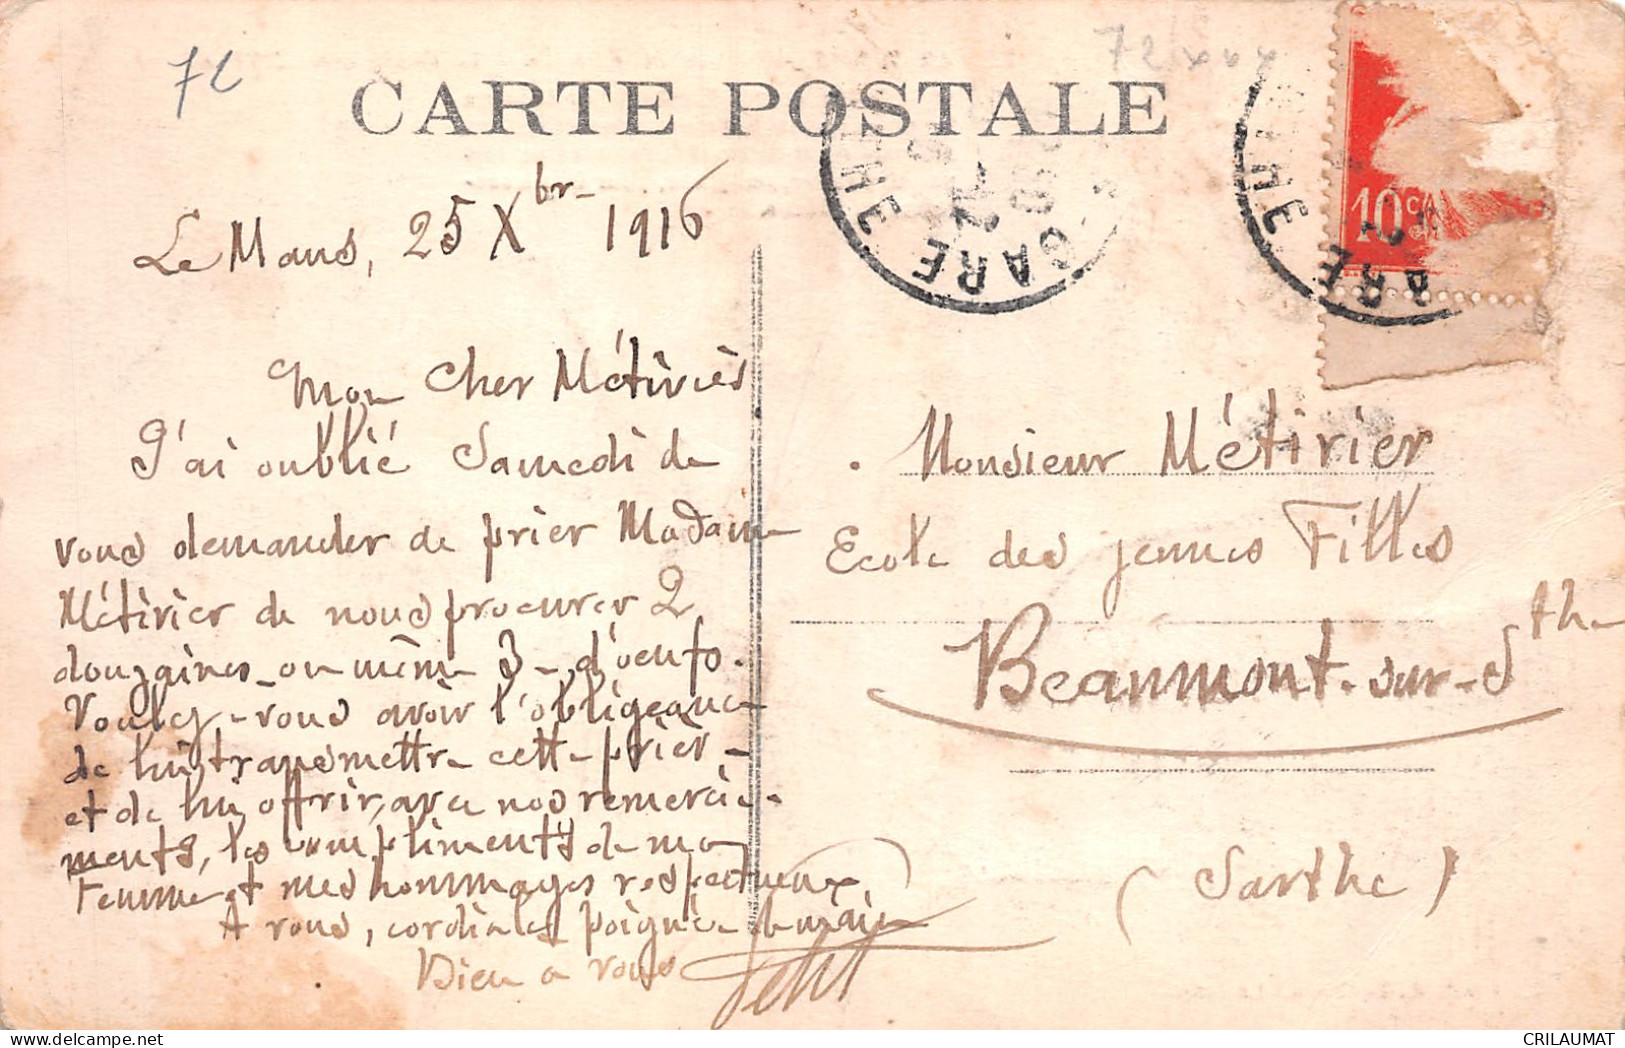 72
CARTE POSTALE
Le Mans, 25 Xbr- 1916
Mon Cher Métivier
J'ai oublié Samedi de
vous demander de prier Madame
Métivier de nous procurer 2
douzaines - ou même 3 - d'oeufs.
Voulez-vous avoir l'obligeance
de lui transmettre cette prière
et de lui offrir, avec nos remercie-
ments, les compliments de ma
Femme et mes hommages respectueux.
A vous, cordiale poignée de main
Bien à vous
Petit
GARE
THE
10 c
GARE
THE
Monsieur Métivier
Ecole des jeunes Filles
Beaumont-sur-Sthe
(Sarthe)
CRILAUMAT